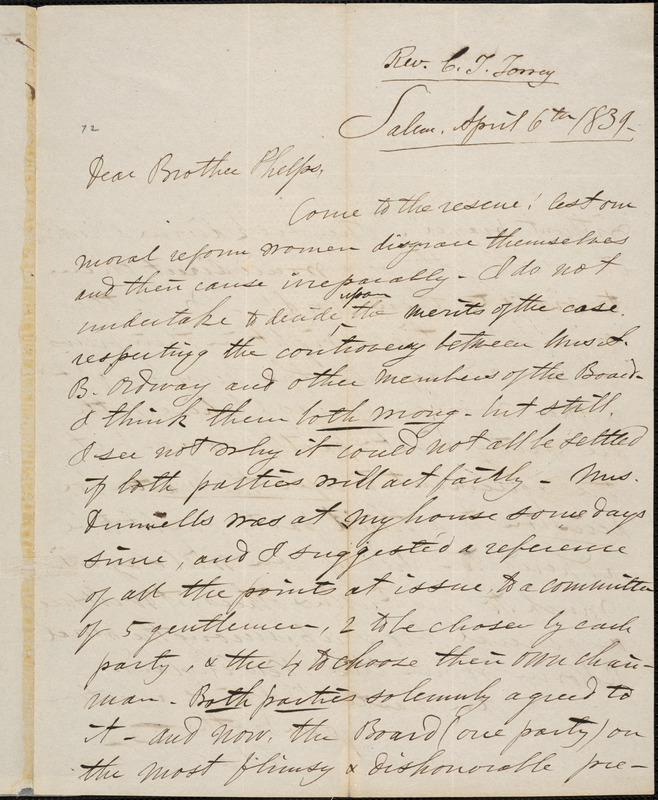 Rev. C. T. Torrey
Salem, April 6th 1839-
72
Dear Brother Phelps,
Come to the rescue! lest our
moral reform women disgrace themselves
and their cause irreparably - I do not
undertake to decide upon the merits of the case.
respecting the controversy between Mrs. S.
B. Ordway and other members of the Board-
I think them both wrong - but still,
I see not why it could not all be settled
if both parties will act fairly - Mrs.
Dunnells was at my house some days
since, and I suggested a reference
of all the points at issue, to a committee
of 5 gentlemen, 2 to be chosen by each
party, & the 4 to choose their own chair-
man - Both parties solemnly agreed to
it - and now, the Board (one party) on
the most flimsy & dishonorable pre-